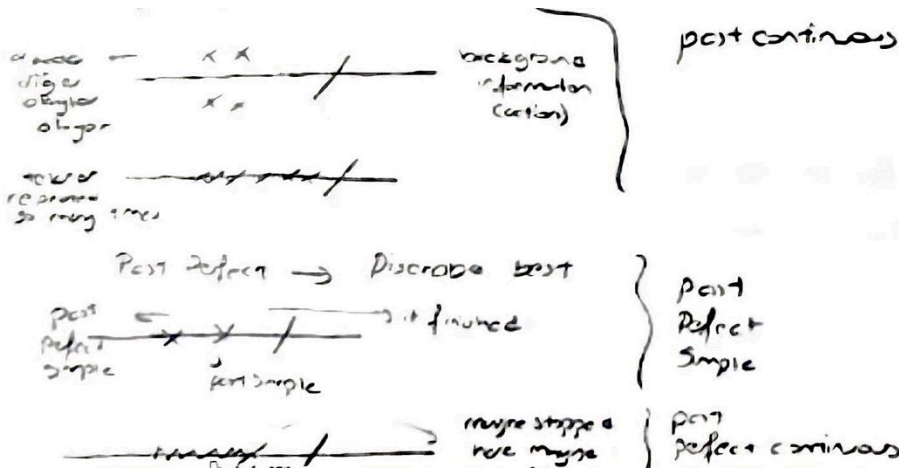 past continuous
background
information
(action)
diğer
olaylar
repeated
so many times
Past Perfect → Discrobe best
past
Pefect
simple
it finished
past simple
past
Pefect
simple
maybe stopped
here maybe
past
Perfect continuous